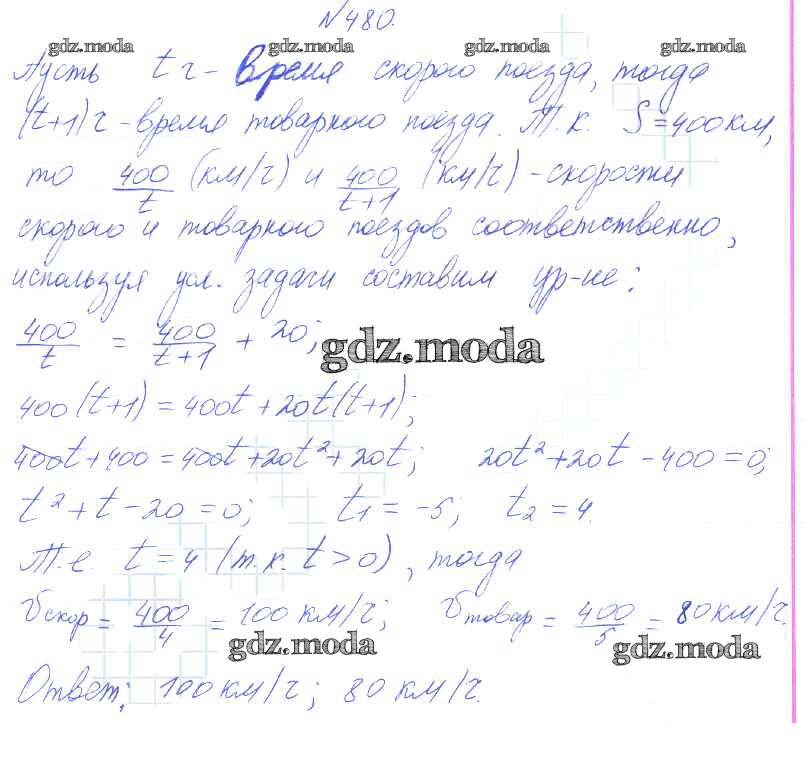 №480.
gdz.moda gdz.moda gdz.moda gdz.moda
Пусть t ч - время скорого поезда, тогда
(t+1) ч - время товарного поезда. Т.к. S=400км,
то 400/t (км/ч) и 400/t+1 (км/ч) - скорости
скорого и товарного поездов соответственно,
используя усл. задачи составим ур-ие:
400/t = 400/t+1 + 20;
gdz.moda
400(t+1) = 400t + 20t(t+1);
400t + 400 = 400t + 20t² + 20t; 20t² + 20t - 400 = 0;
t² + t - 20 = 0; t1 = -5; t2 = 4.
Т.е. t = 4 (т.к. t > 0), тогда
Vскор = 400/4 = 100 км/ч; Vтовар = 400/5 = 80км/ч.
gdz.moda gdz.moda
Ответ: 100км/ч; 80 км/ч.